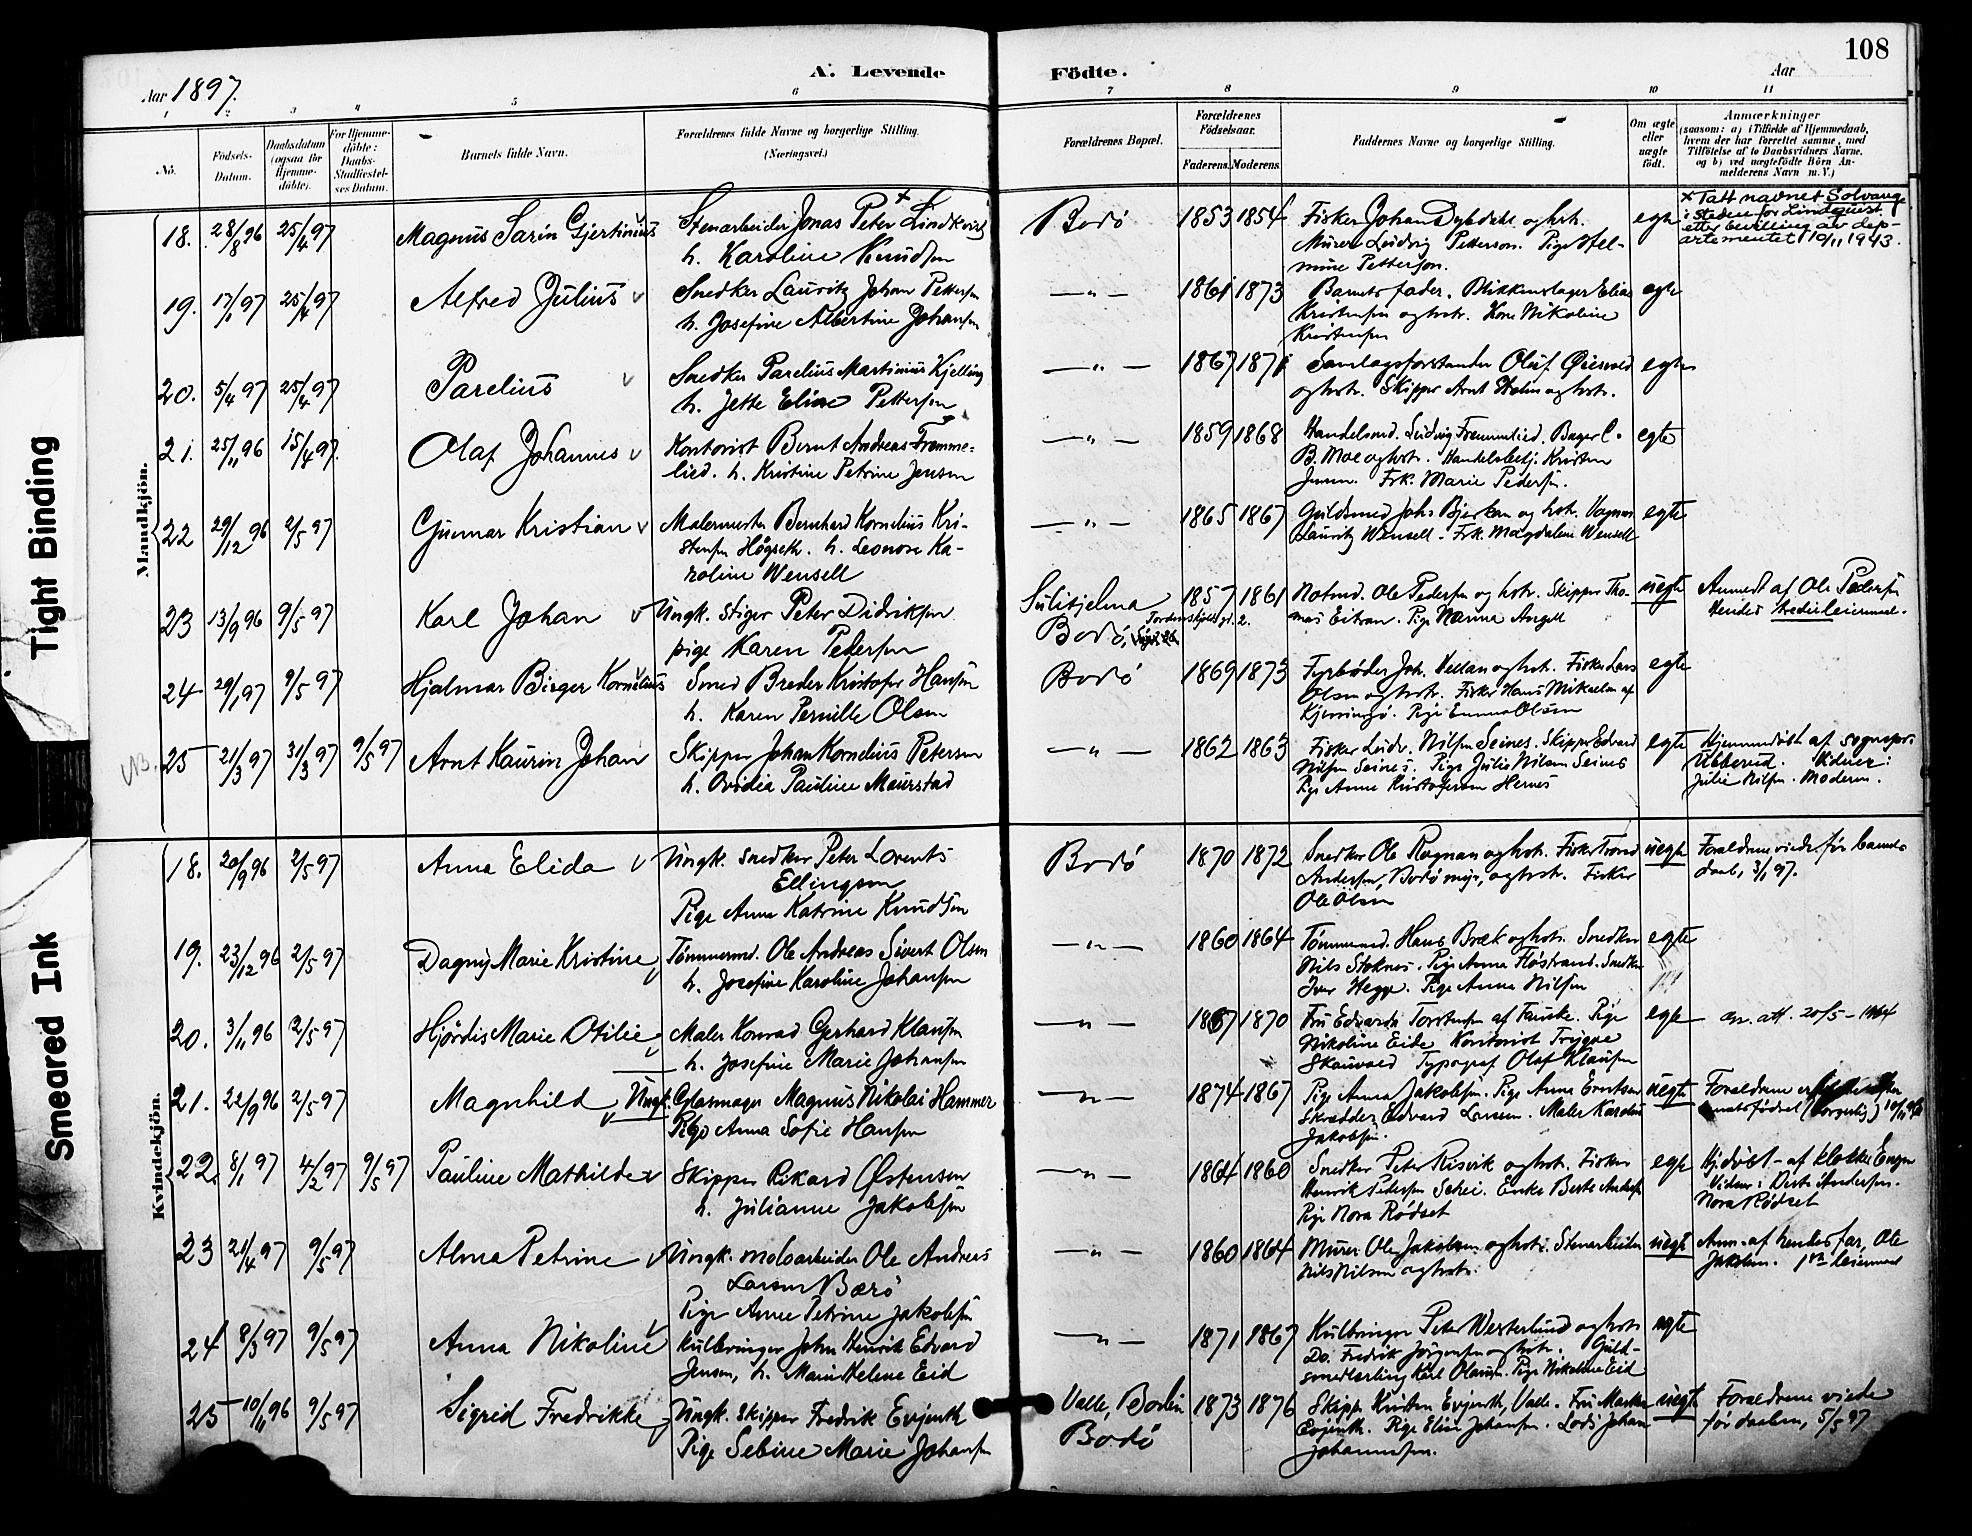 108
Aar 1897.
A. Levende Födte.
Aar
1 2 3 4 5 6 7 8 9 10 11
No.
Födsels-Datum.
Daabsdatum (ogsaa for Hjemmedöbte).
For Hjemmedöbte: Daabs-Stadfæstelses Datum.
Barnets fulde Navn.
Forældrenes fulde Navne og borgerlige Stilling.
(Næringsvei.)
Forældrenes Bopæl.
Forældrenes Födselsaar.
Faderens. Moderens.
Faddernes Navne og borgerlige Stilling.
Om ægte eller uægte födt.
Anmærkninger
(saasom: a) i Tilfælde af Hjemmedaab, hvem der har forrettet samme, med Tilföielse af to Daabsvidners Navne, og b) ved uægtefödte Börn Anmelderens Navn m. V.)
Mandkjön.
18. 28/8 96 25/4 97 Magnus Sarin Gjertinius
Stenarbeider Jonas Peter × Lindkvist
h. Karoline Knudsen
Bodö 1853 1854
Fisker Johan Dybdahl og hst.
Murer Ludvig Petterson. Pige Hel-
mine Petterson.
egte
× Tatt navnet Solvang
i steden for Lindquist
etter bevilling av dep-
artementet 10/11 1943.
19. 17/1 97 25/4 97 Alfred Julius
Snedker Lauritz Johan Pettersen
h. Josefine Albertine Johansen
—"— 1861 1873
Barnets fader. Blikkenslager Elias
Kristensen og hst. Kone Nikoline
Kristensen
egte
20. 5/4 97 25/4 97 Parelius
Snedker Parelius Martinius Kjelling
h. Jette Eline Pettersen
—"— 1867 1871
Samlagsforstander Oluf
og hst. Skipper Arnt Holm og hst.
egte
21. 25/11 96 15/4 97. Olaf Johannes
Kontorist Bernt Andreas Fremme-
lied. h. Kristine Petrine Jensen
—"— 1859 1868
Handelsmd. Ludvig Fremmelied. Bager C.
B. Moe og hst. Handelsbetj. Kristen
Jensen. Frk. Marie Pedersen.
egte
22 29/12 96 2/5 97 Gunnar Kristian
Malermester Bernhard Kornelius Kri-
stensen Högseth. h. Leonore Ka-
roline Wensell
—"— 1865 1867
Guldsmed Johs Bjerkan og hst. Vognm
Lauritz Wensell. Frk. Magdalene Wensell
egte
23 13/9 96 9/5 97 Karl Johan
Ungk. Stiger Peter Didriksen
pige Karen Pedersen
Sulitjelma
Bodö, Tordenskjolds gd. 2.
1857 1861
Notmd. Ole Pedersen og hst. Skipper Tho-
mas Eitran. Pige Nanna Angell
uegte
Anmeldt af Ole Pedersen
Hendes tredie leiermaal.
24 29/1 97 9/5 97 Hjalmar Birger Kornelius
Smed Breder Kristofer Hansen
h. Karen Pernille Olsen
Bodö 1869 1873
Fyrböder Joh. Vellan og hst. Fisker Lars
Olsen og hst. Fisker Hans Mikaelsen af
Kjerringö. Pige Emma Olsen
egte
NB. 25 21/3 97 31/3 97 9/5 97 Arnt Kaurin Johan
Skipper Johan Kornelius Petersen
h. Ovidia Pauline Maurstad
—"— 1862 1863
Fisker Ludv. Nilsen Seines. Skipper Edvard
Nilsen Seines. Pige Julie Nilsen Seines
Pige Anne Kristofersen Hernes
egte
Hjemmedöbt af sognepr.
Ubberud. Vidner:
Julie Nilsen. Moderen.
Kvindekjön.
18. 20/9 96 2/5 97 Anna Elida
Ungk. Snedker Peter Lorents
Ellingsen
Pige Anne Katrine Knudsen
Bodö 1870 1872
Snedker Ole Rognan og hst. Fisker Trond
Andersen, Bodömyr, og hst. Fisker
Ole Olsen
uegte
Forældrene viede för barnets
daab, 3/1 97.
19. 23/12 96 2/5 97 Dagny Marie Kristine
Tömmermd. Ole Andreas Sivert Olsen
h. Josefine Karoline Johansen
—"— 1860 1864
Tömmermd. Hans Bræk og hst. Snedker
Nils Stoknes. Pige Anna Flöstrand. Snedker
Iver Hegge. Pige Anna Nilsen
egte
20. 3/11 96 2/5 97 Hjördis Marie Otilie
Maler Konrad Gerhard Klausen
h. Josefine Marie Johansen
—"— 1867 1870
Fru Edvarda Torstensen af Fauske. Pige
Nikoline Eide Kontorist Trygve
Skauvold Typograf Olaf Klausen
egte
att. 20/5 - 1964
21. 22/9 96 2/5 97 Magnhild
Ungk. Glasmager Magnus Nikolai Hammer
Pige Anna Sofie Hansen
—"— 1874 1867
Pige Anna Jakobsen. Pige Anna Evertsen
Skrædder Edvard Larssen. Maler Karolius
Jakobsen.
uegte
Forældrene
(borgerlig)
22. 8/1 97 4/2 97 9/5 97 Pauline Mathilde
Skipper Rikard Östensen
h. Julianne Jakobsen
—"— 1864 1860
Snedker Peter Risvik og hst. Fisker
Henrik Pedersen Schei. Enke Berte Andersen
Pige Nora Rödset
egte
Hj. döbt - af klokker Engen
Vidner: Berte Andersen.
Nora Rödset
23 21/4 97 9/5 97 Alma Petrine
Ungk. moloarbeider Ole Andreas
Larsen Bærö
Pige Anne Petrine Jakobsen
—"— 1860 1864
Murer Ole Jakobsen og hst. Stenarbeider
Nils Nilsen og hst.
uegte
Anm. af hendes far, Ole
Jakobsen. 1ste leiermaal
24 8/3 97 9/5 97 Anna Nikoline
Kulbringer John Henrik Edvard
Jensen, h. Marie Helene Eid
—"— 1871 1867
Kulbringer Peter Westerlund og hst.
Do. Fredrik Jörgensen og hst. Guld-
smedlærling Karl Olausen. Pige Nikoline Eid
egte
25 10/11 96 9/5 97 Sigrid Fredrikke
Ungk. Skipper Fredrik Evjenth
Pige Sebine Marie Johansen
Valle, Bodin
Bodö
1873 1876
Skipper Kristen Evjenth, Valle. Fru Marken
Evjenth. Pige Elise Johansen. Lods Johan
Johannessen.
uegte
Forældrene viede
för daaben, 5/5 97
Tight Binding
Smeared Ink